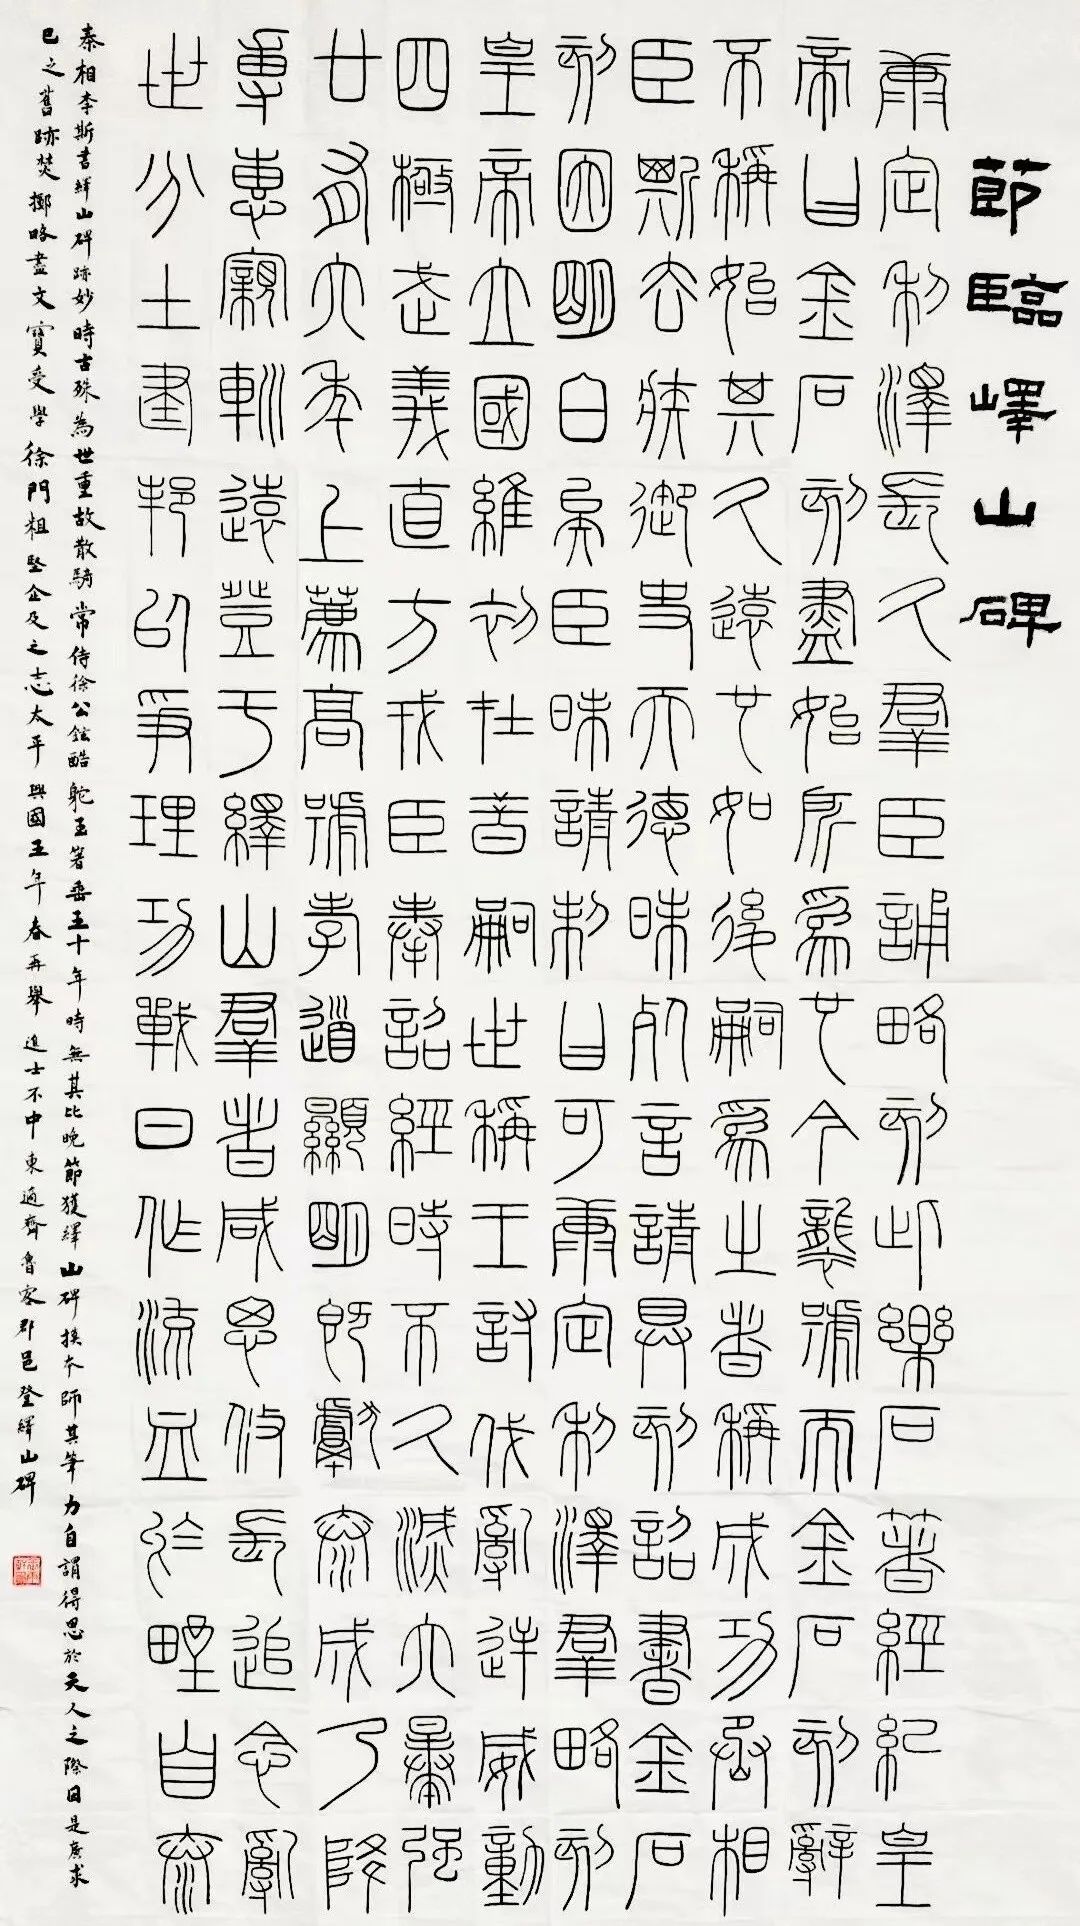 節臨嶧山碑
康定利澤長久群臣誦略刻此樂石著經紀皇
帝曰金石刻盡始所為也今襲號而金石刻辭
不稱始其久遠也如後嗣為之者稱成功盛相
臣斯去疾御史夫德昧死言請具刻詔書金石
刻因明白矣臣昧請制曰可康定利澤群略刻
皇帝立國維初在昔嗣世稱王討伐亂逆威動
四極武義直方戎臣奉詔經時不久滅六暴强
廿有六年上薦高號孝道顯明既獻泰成乃降
專惠親巡遠登于繹山群者咸思攸長追念亂
世分土建邦以爭理功戰日作流血於野自泰
秦相李斯書繹山碑跡妙時古殊為世重故散騎常侍徐公鉉酷躭玉箸垂五十年時無其比晚節獲繹山碑摸本師其筆力自謂得思於天人之際因是廣求
己之舊跡焚擲略盡文寶受學徐門粗堅企及之志太平興國五年春再舉進士不中東適齊魯客郡邑登繹山碑